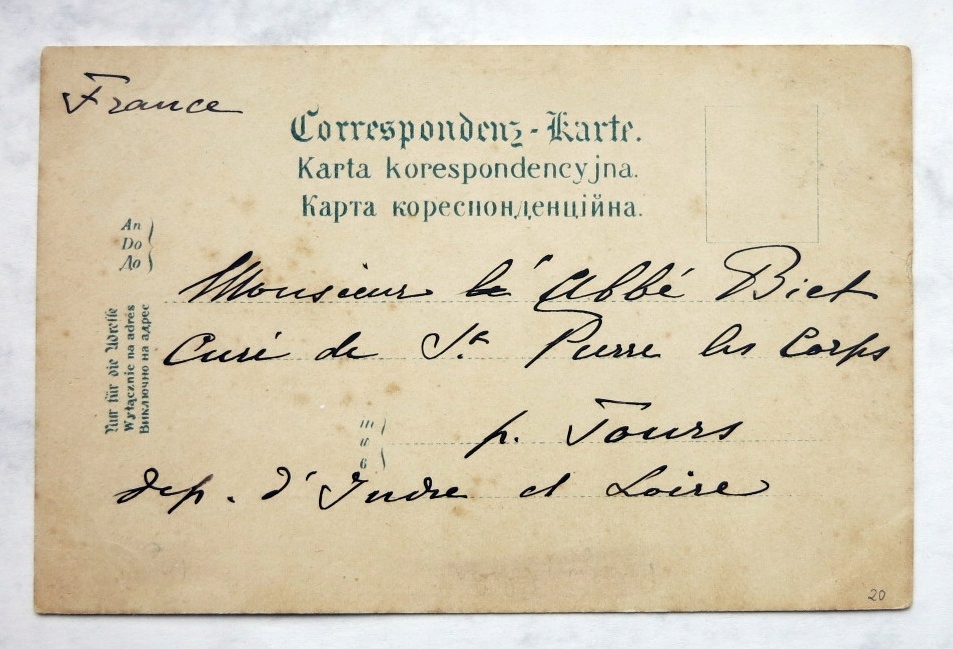 France
Correspondenz-Karte.
Karta korespondencyjna.
Карта кореспонденційна.
An
Do
До
Monsieur le' Abbé Biet
Nur für die Adresse
Wyłącznie na adrés
Виключно на адрес
Curé de St. Pierre les Corps
in
w
в
p. Tours
dep. d'Indre et Loire
20